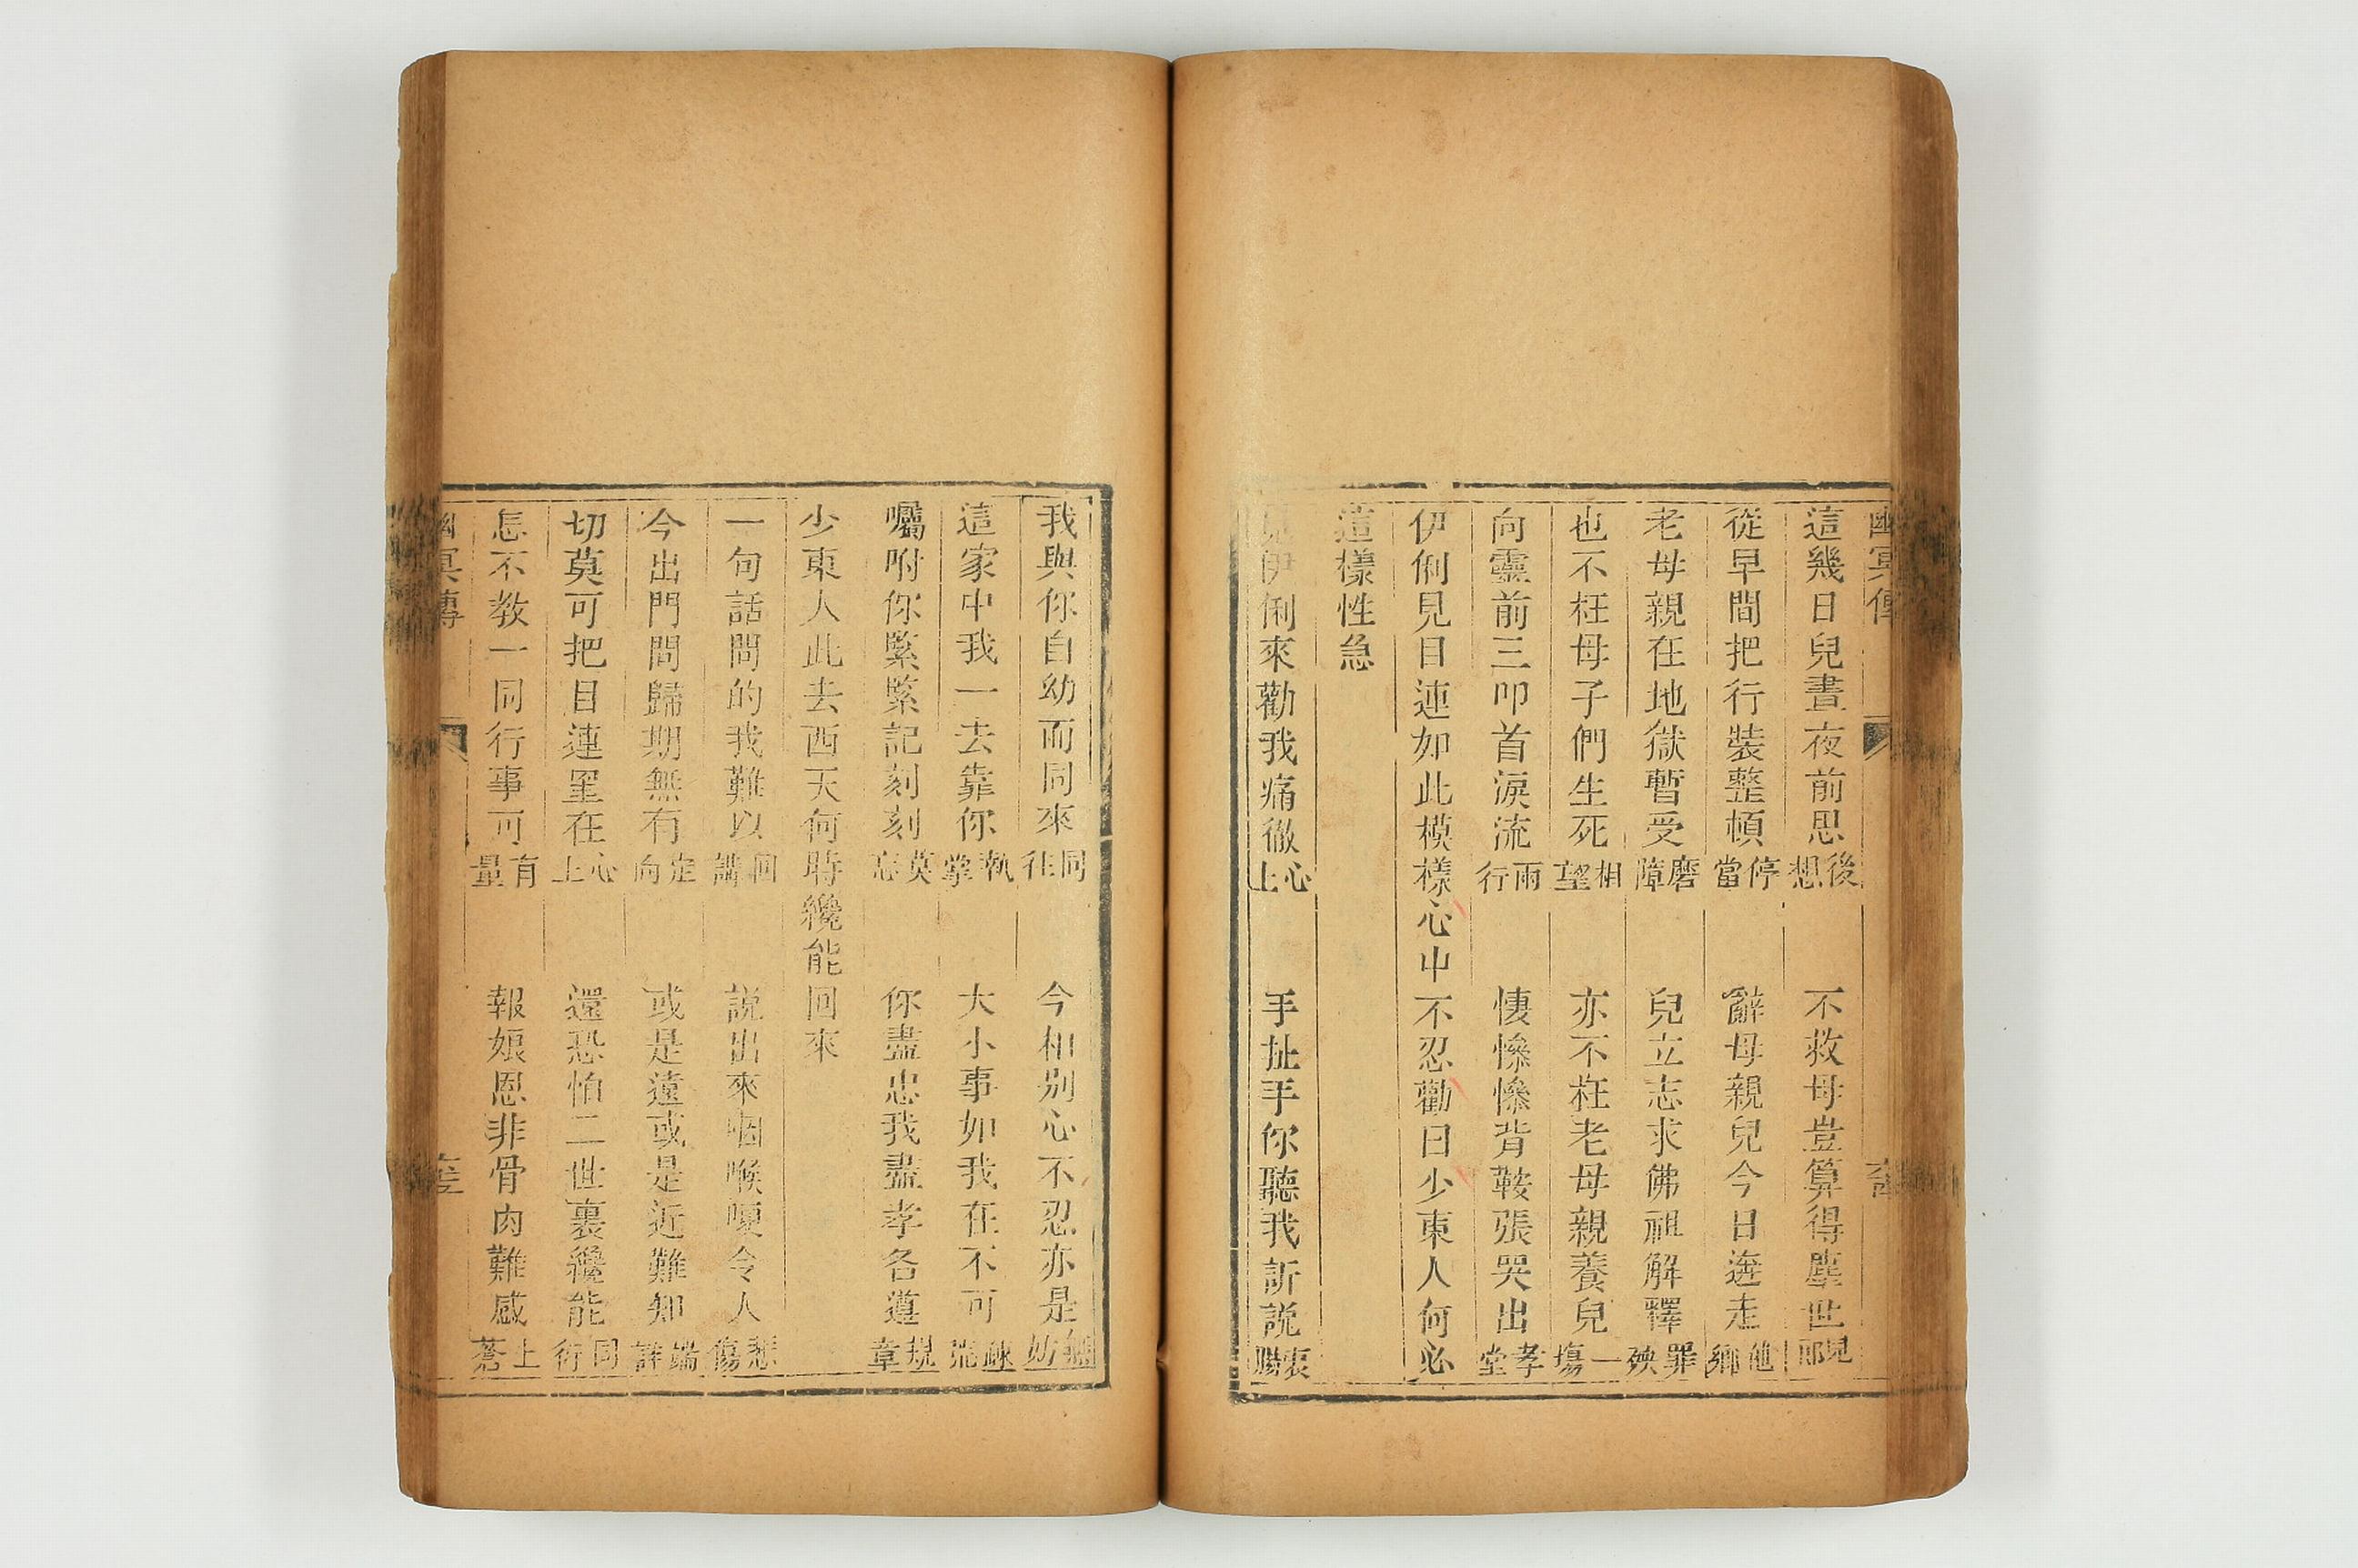 幽冥傳
這幾日兒晝夜前思後想 不救母豈算得塵世兒郎
從早間把行裝整頓停當 辭母親兒今日逩走他鄉
老母親在地獄暫受磨障 兒立志求佛祖解釋罪殃
也不枉母子們生死相望 亦不枉老母親養兒一塲
向靈前三叩首淚流兩行 悽慘慘背鞍張哭出孝堂
伊俐見目連如此模樣心中不忍勸曰少東人何必
這樣性急
見伊俐來勸我痛徹心上 手扯手你聽我訴說衷腸
我與你自幼而同來同往 今相別心不忍亦是無妨
這家中我一去靠你執掌 大小事如我在不可疎慌
囑咐你緊緊記刻刻莫忘 你盡忠我盡孝各遵規章
少東人此去西天何時纔能回來
一句話問的我難以回講 說出來咽喉哽令人悲傷
今出門問歸期無有定向 或是遠或是近難知端詳
切莫可把目連罣在心上 還恐怕二世裏纔能同行
怎不教一同行事可有量 報娘恩非骨肉難感上蒼
幽冥傳